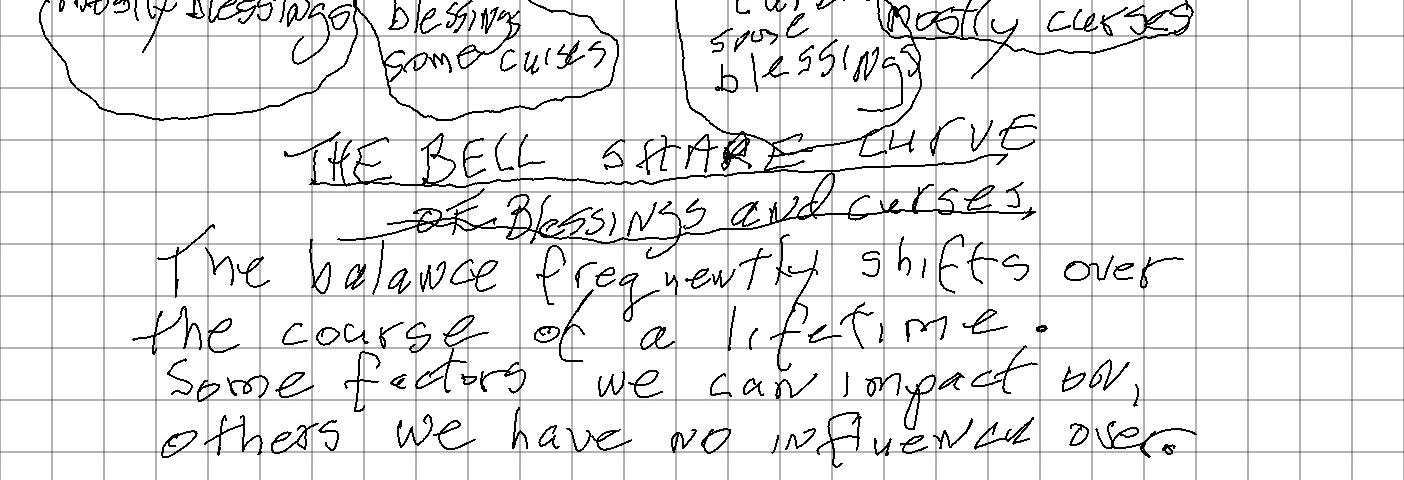 mostly blessings
blessings
some curses
some
blessings
mostly curses
THE BELL SHAPE CURVE
OF Blessings and curses.
The balance frequently shifts over
the course of a lifetime.
Some factors we can impact on,
others we have no influence over.